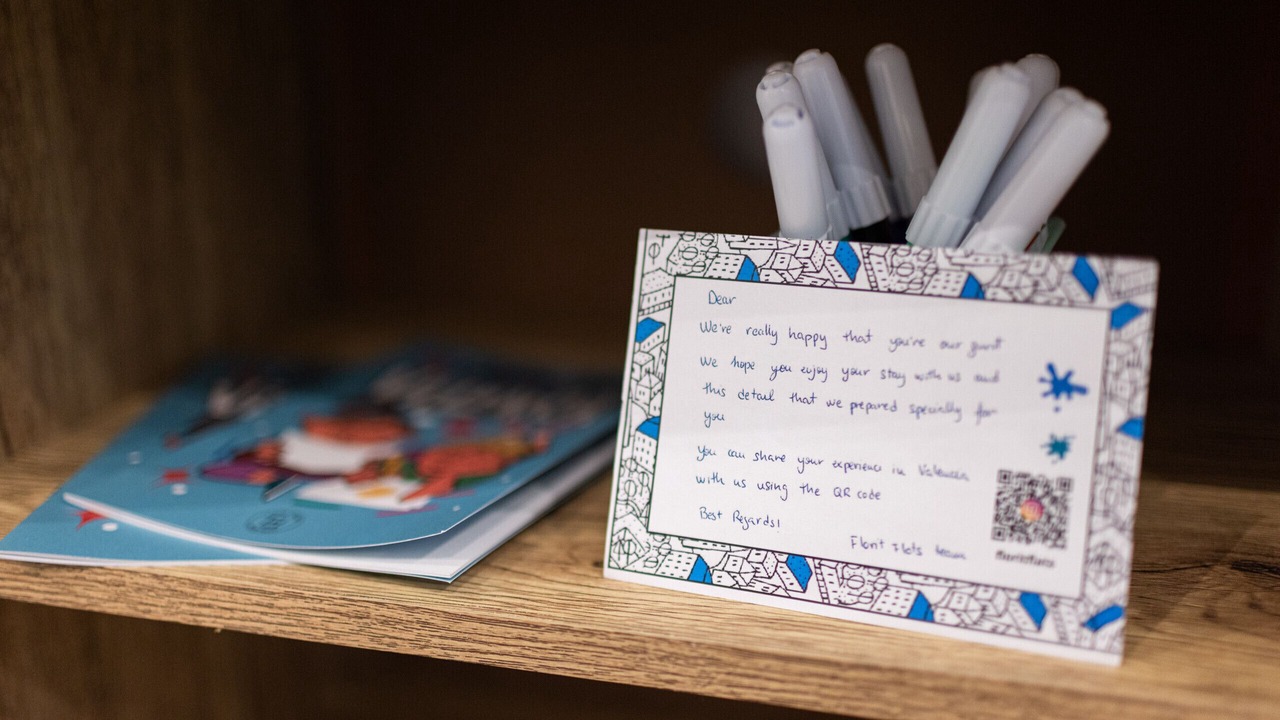 Dear
We're really happy that you're our guest
We hope you enjoy your stay with us and
this detail that we prepared specially for
you
you can share your experience in Valencia
with us using the QR code
Best Regards!
Florit Flats team